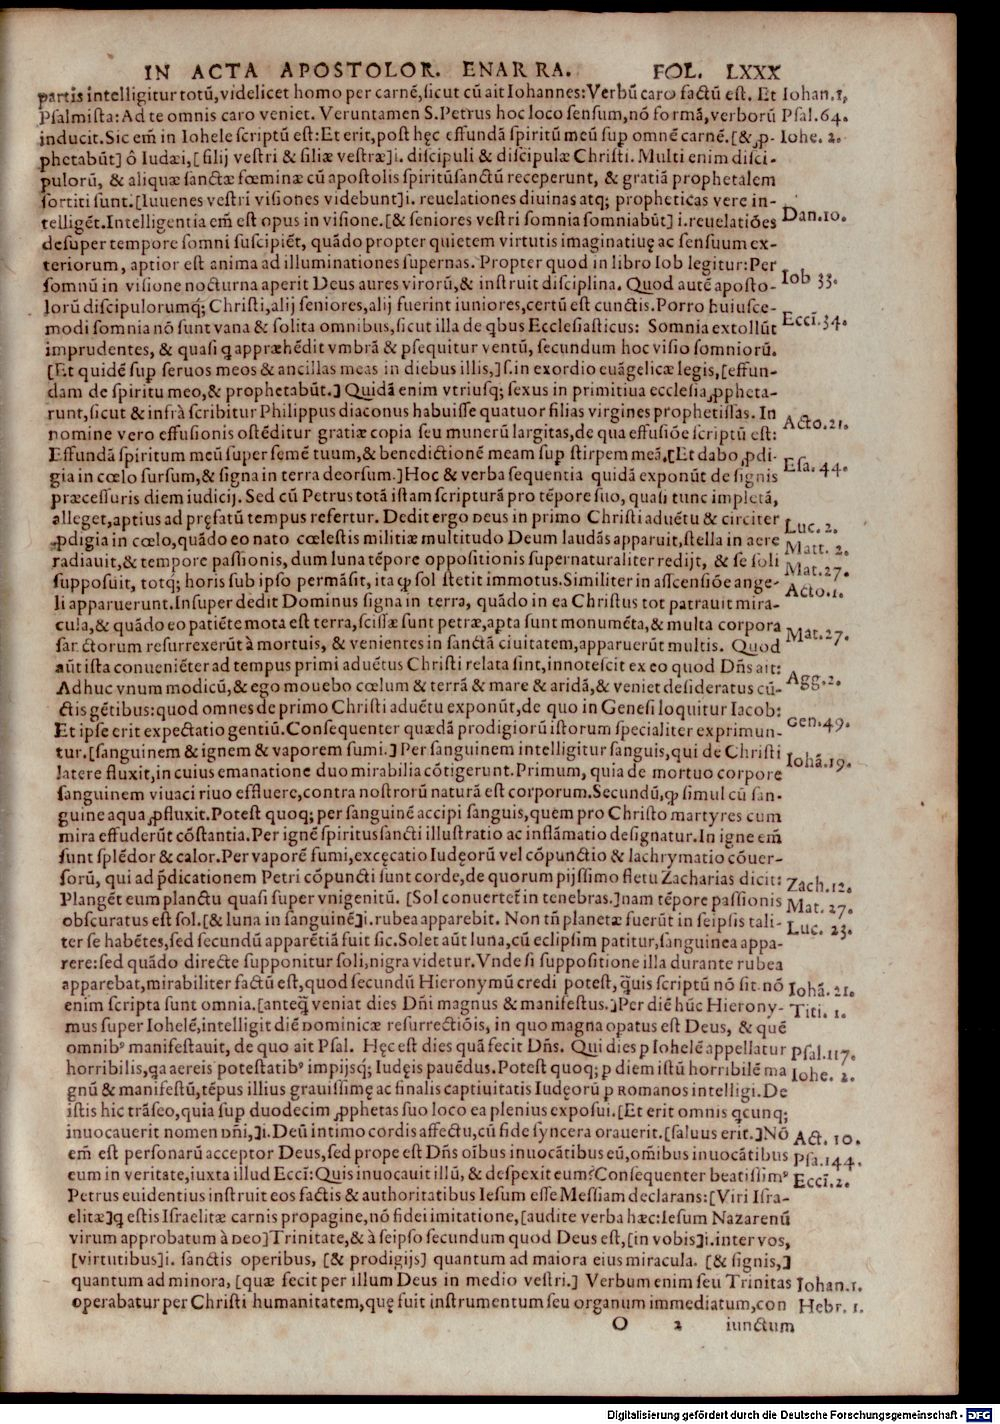 IN ACTA APOSTOLOR. ENARRA. FOL. LXXX
partis intelligitur totū,videlicet homo per carnē,sicut cū ait Iohannes:Verbū caro factū est. Et Iohan.1,
Psalmista:Ad te omnis caro veniet. Veruntamen S.Petrus hoc loco sensum,nō formā,verborū Psal.64.
inducit.Sic em̄ in Iohele scriptū est:Et erit,post hęc effundā spiritū meū sup omnē carnē.[&,p- Iohe. 2.
phetabūt] ô Iudæi,[filij vestri & filiæ vestræ]i. discipuli & discipulæ Christi. Multi enim disci-
pulorū, & aliquæ sanctæ fœminæ cū apostolis spiritūsanctū receperunt, & gratiā prophetalem
sortiti sunt.[Iuuenes vestri visiones videbunt]i. reuelationes diuinas atq; propheticas vere in-
telligēt.Intelligentia em̄ est opus in visione.[& seniores vestri somnia somniabūt] i.reuelatiōes Dan.10.
desuper tempore somni suscipiēt, quādo propter quietem virtutis imaginatiuę ac sensuum ex-
teriorum, aptior est anima ad illuminationes supernas. Propter quod in libro Iob legitur:Per
somnū in visione nocturna aperit Deus aures virorū,& instruit disciplina. Quod autē aposto- Iob 33.
lorū discipulorumq; Christi,alij seniores,alij fuerint iuniores,certū est cunctis. Porro huiusce-
modi somnia nō sunt vana & solita omnibus,sicut illa de qbus Ecclesiasticus: Somnia extollūt Eccī.34.
imprudentes, & quasi q appræhēdit vmbrā & psequitur ventū, secundum hoc visio somniorū.
[Et quidē sup seruos meos & ancillas meas in diebus illis,] s.in exordio euāgelicæ legis, [effun-
dam de spiritu meo,& prophetabūt.] Quidā enim vtriusq; sexus in primitiua ecclesia ,ppheta-
runt,sicut & infrà scribitur Philippus diaconus habuisse quatuor filias virgines prophetissas. In Acto.21.
nomine vero effusionis ostēditur gratiæ copia seu munerū largitas,de qua effusiōe scriptū est:
Effundā spiritum meū super semē tuum,& benedictionē meam sup stirpem meā.[Et dabo ,pdi- Esa.44.
gia in cœlo sursum,& signa in terra deorsum.]Hoc & verba sequentia quidā exponūt de signis
præcessuris diem iudicij. Sed cū Petrus totā istam scripturā pro tēpore suo, quasi tunc impletā,
alleget,aptius ad pręfatū tempus refertur. Dedit ergo DEUS in primo Christi aduētu & circiter Luc. 2.
,pdigia in cœlo,quādo eo nato cœlestis militiæ multitudo Deum laudās apparuit,stella in aere Matt. 2.
radiauit,& tempore passionis, dum luna tēpore oppositionis supernaturaliter redijt, & se soli Mat.27.
supposuit, totq; horis sub ipso permāsit, ita qp sol stetit immotus.Similiter in ascensiōe ange- Acto.1.
li apparuerunt.Insuper dedit Dominus signa in terra, quādo in ea Christus tot patrauit mira-
cula,& quādo eo patiēte mota est terra,scissæ sunt petræ,apta sunt monumēta,& multa corpora
sanctorum resurrexerūt à mortuis, & venientes in sanctā ciuitatem,apparuerūt multis. Quod Mat.27.
aūt ista conueniēter ad tempus primi aduētus Christi relata sint,innotescit ex eo quod Dn̄s ait:
Adhuc vnum modicū,& ego mouebo cœlum & terrā & mare & aridā,& veniet desideratus cū- Agg.2.
ctis gētibus:quod omnes de primo Christi aduētu exponūt,de quo in Genesi loquitur Iacob:
Et ipse erit expectatio gentiū.Consequenter quædā prodigiorū istorum specialiter exprimun- Gen.49.
tur.[sanguinem & ignem & vaporem fumi.] Per sanguinem intelligitur sanguis,qui de Christi
latere fluxit,in cuius emanatione duo mirabilia cōtigerunt.Primum, quia de mortuo corpore Iohā.19.
sanguinem viuaci riuo effluere,contra nostrorū naturā est corporum.Secundū,qp simul cū san-
guine aqua ,pfluxit.Potest quoq; per sanguinē accipi sanguis,quem pro Christo martyres cum
mira effuderūt cōstantia.Per ignē spiritussancti illustratio ac inflāmatio designatur.In igne em̄
sunt splēdor & calor.Per vaporē fumi,excęcatio Iudęorū vel cōpunctio & lachrymatio cōuer-
sorū, qui ad p̄dicationem Petri cōpuncti sunt corde,de quorum pijssimo fletu Zacharias dicit: Zach.12.
Plangēt eum planctu quasi super vnigenitū. [Sol conuertet̄ in tenebras.]nam tēpore passionis Mat. 27.
obscuratus est sol.[& luna in sanguinē]i.rubea apparebit. Non tn̄ planetæ fuerūt in seipsis tali- Luc. 23.
ter se habētes,sed secundū apparētiā fuit sic.Solet aūt luna,cū eclipsim patitur,sanguinea appa-
rere:sed quādo directe supponitur soli,nigra videtur.Vnde si suppositione illa durante rubea
apparebat,mirabiliter factū est,quod secundū Hieronymū credi potest, q̄uis scriptū nō sit.nō Iohā.21.
enim scripta sunt omnia.[anteq̄ veniat dies Dn̄i magnus & manifestus.]Per diē hūc Hierony- Titi. 1.
mus super Iohelē,intelligit diē DOMINICÆ resurrectiōis, in quo magna opatus est Deus, & quē
omnib⁹ manifestauit, de quo ait Psal. Hęc est dies quā fecit Dn̄s. Qui dies p Iohelē appellatur Psal.117.
horribilis,qa aereis potestatib⁹ impijsq; Iudęis pauēdus.Potest quoq; p diem istū horribilē ma Iohe. 2.
gnū & manifestū,tēpus illius grauissimę ac finalis captiuitatis Iudęorū p ROMANOS intelligi.De
istis hic trāseo,quia sup duodecim ,pphetas suo loco ea plenius exposui.[Et erit omnis qcunq;
inuocauerit nomen DN̄I,]i.Deū intimo cordis affectu,cū fide syncera orauerit.[saluus erit.]Nō Act. 10.
em̄ est personarū acceptor Deus,sed prope est Dn̄s oībus inuocātibus eū,om̄ibus inuocātibus Psa.144.
eum in veritate,iuxta illud Eccī:Quis inuocauit illū, & despexit eum?Consequenter beatissim⁹ Eccī.2.
Petrus euidentius instruit eos factis & authoritatibus Iesum esse Messiam declarans:[Viri Isra-
elitæ]q estis Israelitæ carnis propagine,nō fidei imitatione,[audite verba hæc:Iesum Nazarenū
virum approbatum à DEO]Trinitate,& à seipso secundum quod Deus est,[in vobis]i.inter vos,
[virtutibus]i. sanctis operibus, [& prodigijs] quantum ad maiora eius miracula. [& signis,]
quantum ad minora, [quæ fecit per illum Deus in medio vestri.] Verbum enim seu Trinitas Iohan.1.
operabatur per Christi humanitatem,quę fuit instrumentum seu organum immediatum,con Hebr. 1.
O 2 iunctum
Digitalisierung gefördert durch die Deutsche Forschungsgemeinschaft - DFG